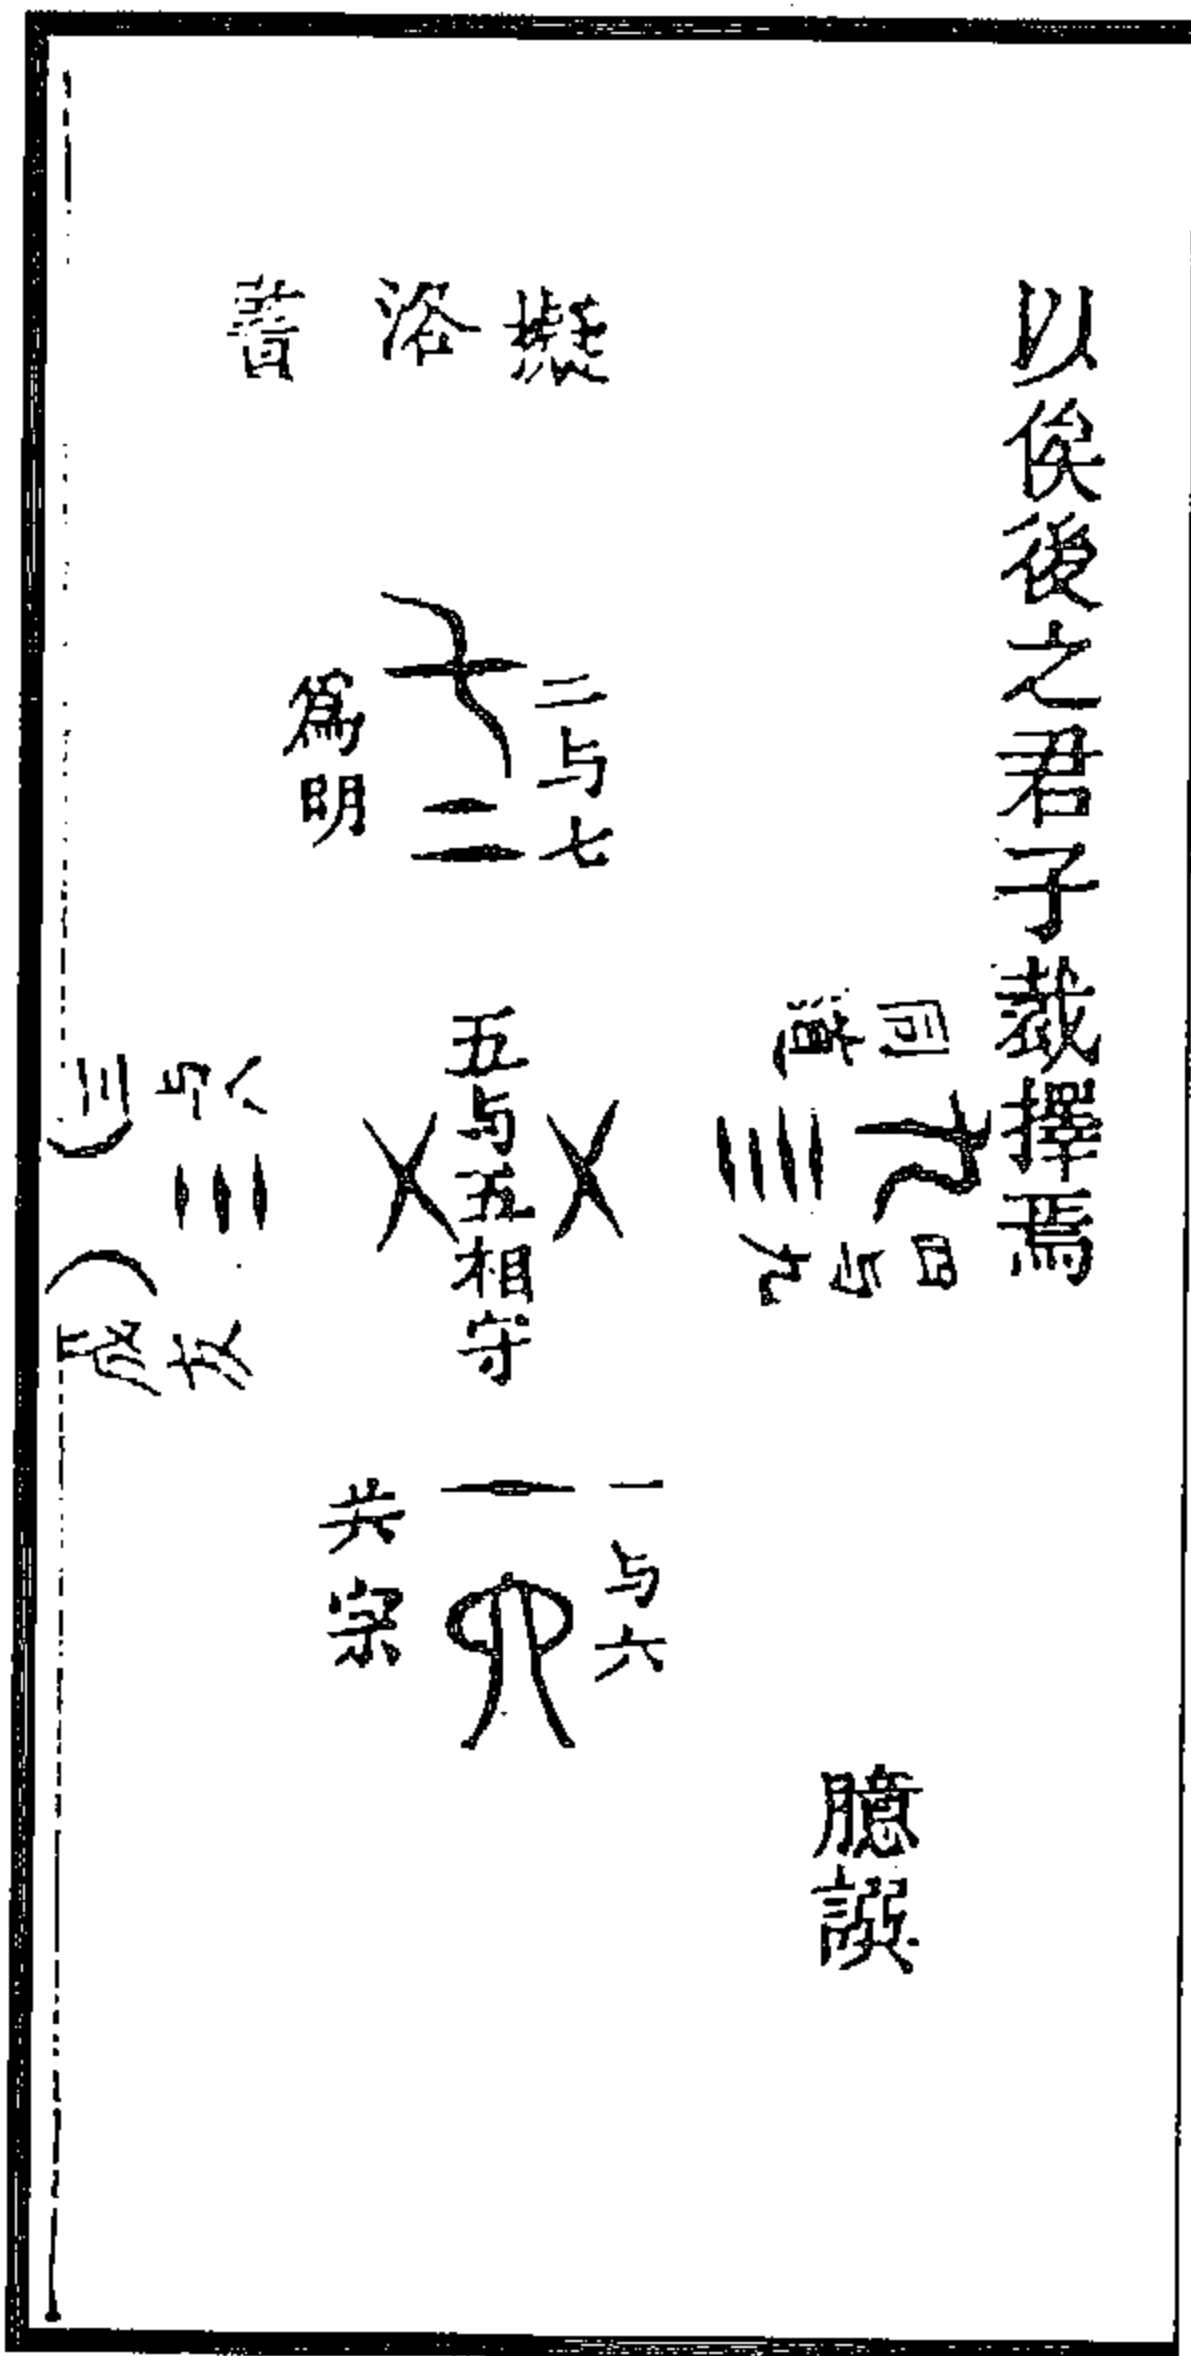 以俟後之君子裁擇焉
臆譔
擬洛書
二与七
七二
爲明
四与九
九 三
同道
五与五相守
㐅 㐅
三与八
三 八
成友
一与六
一六
共宗